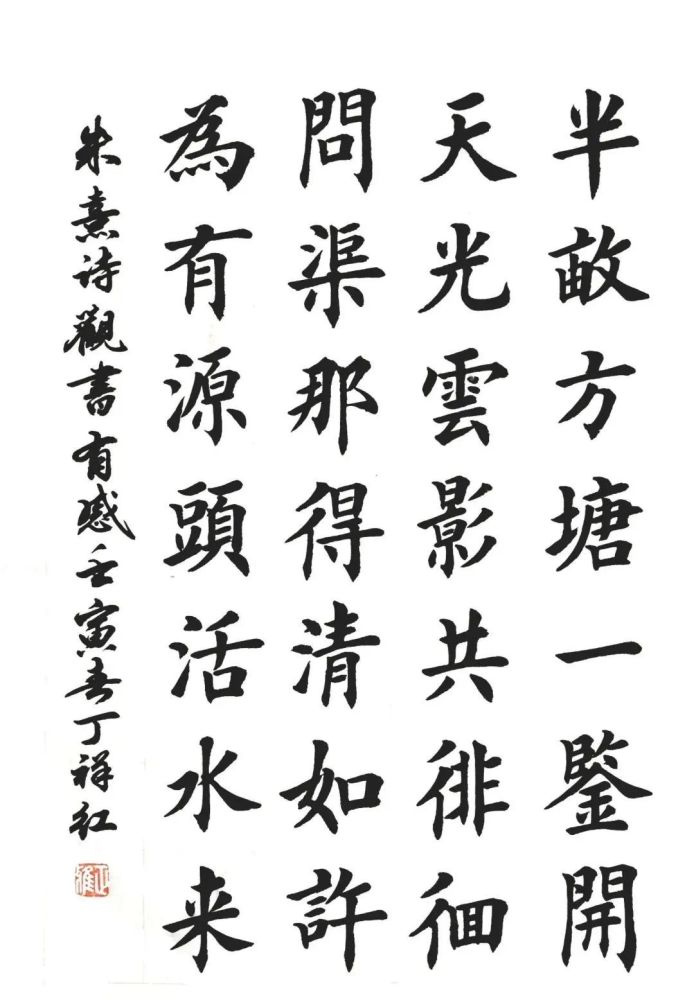 半畝方塘一鑒開
天光雲影共徘徊
問渠那得清如許
為有源頭活水来
朱熹诗觀書有感壬寅春丁祥红